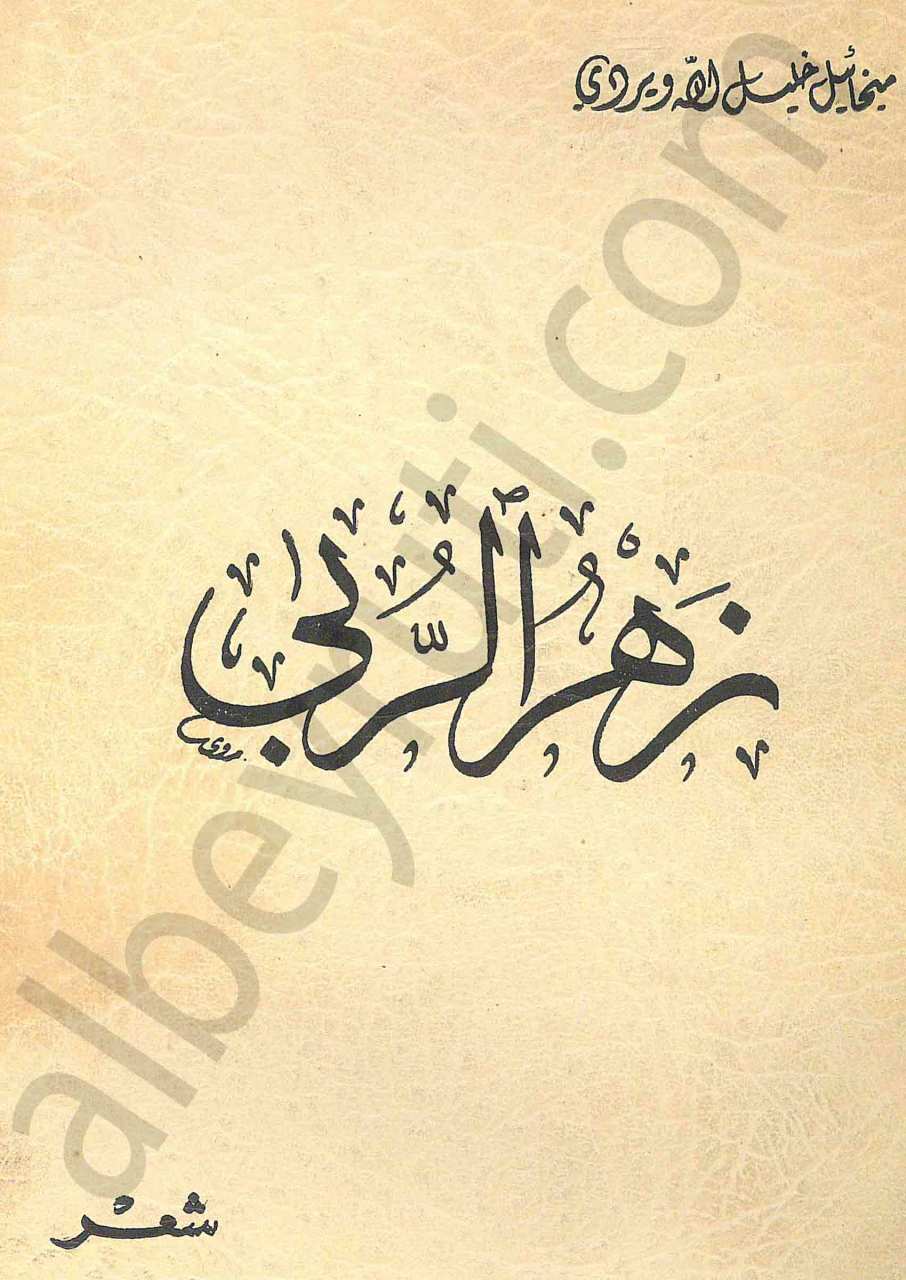 ميخائيل خليل اللّه ويردي
زَهْرُ ٱلرُّبىٰ
شعْر
albeyruti.com